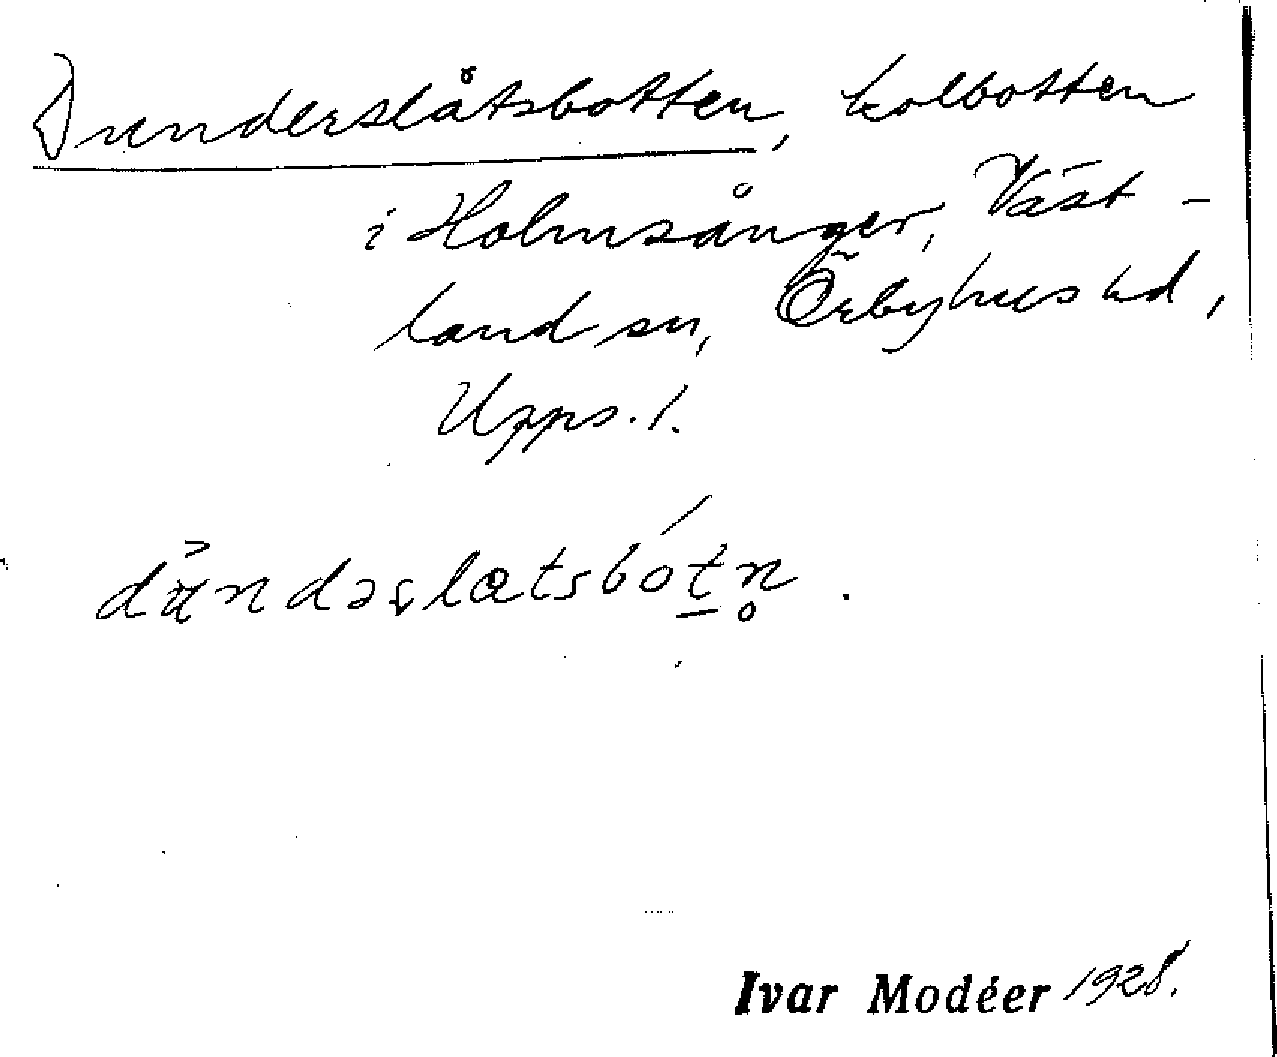 Dunderslåtsbotten, kolbotten
i Holmsånger, Väst-
land sn, Örbyhus hd,
Upps. l.
Ivar Modéer 1928.